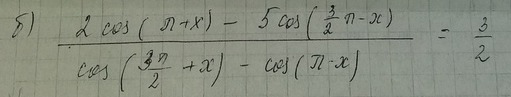 б) (2 cos(π+x) - 5 cos(3/2 π-x)) / (cos(3π/2 +x) - cos(π-x)) = 3/2